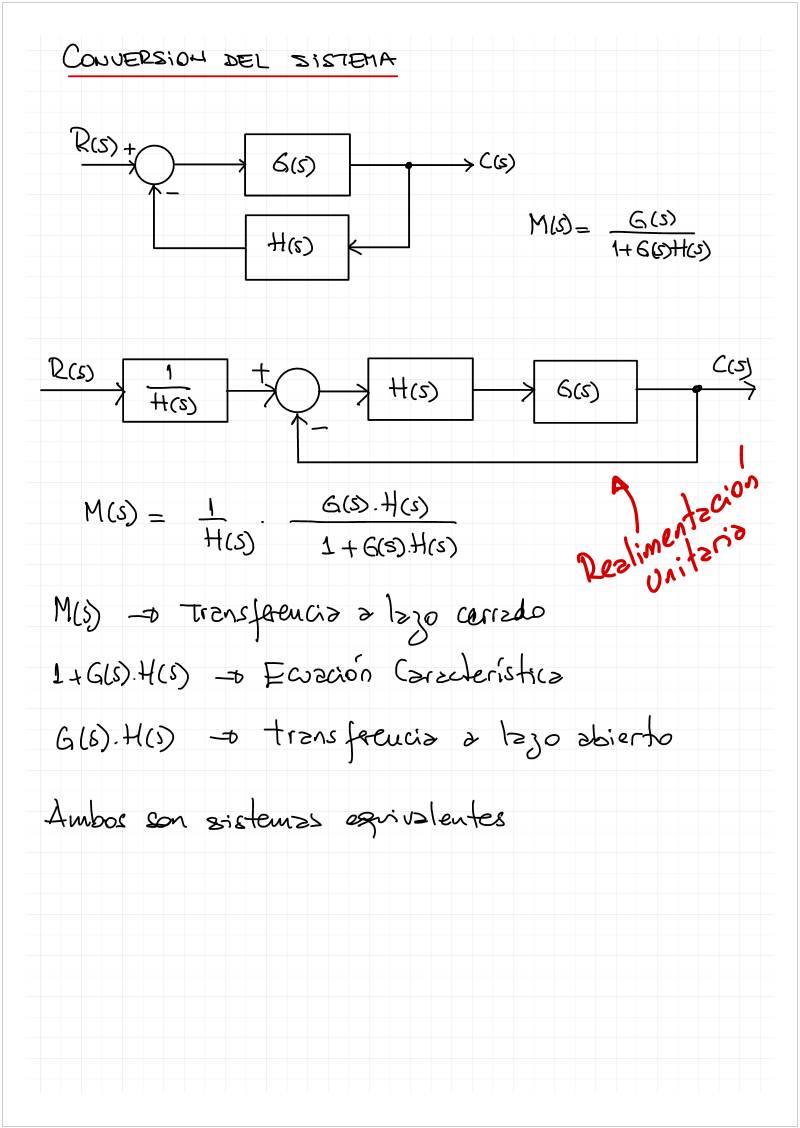 CONVERSION DEL SISTEMA
R(s) + G(s) C(s)
−
H(s)
M(s) = G(s) / 1+G(s)H(s)
R(s) 1 / H(s) + H(s) G(s) C(s)
−
M(s) = 1 / H(s) · G(s).H(s) / 1+G(s).H(s)
Realimentación
unitaria
M(s) → transferencia a lazo cerrado
1+G(s).H(s) → Ecuación Característica
G(s).H(s) → transferencia a lazo abierto
Ambos son sistemas equivalentes